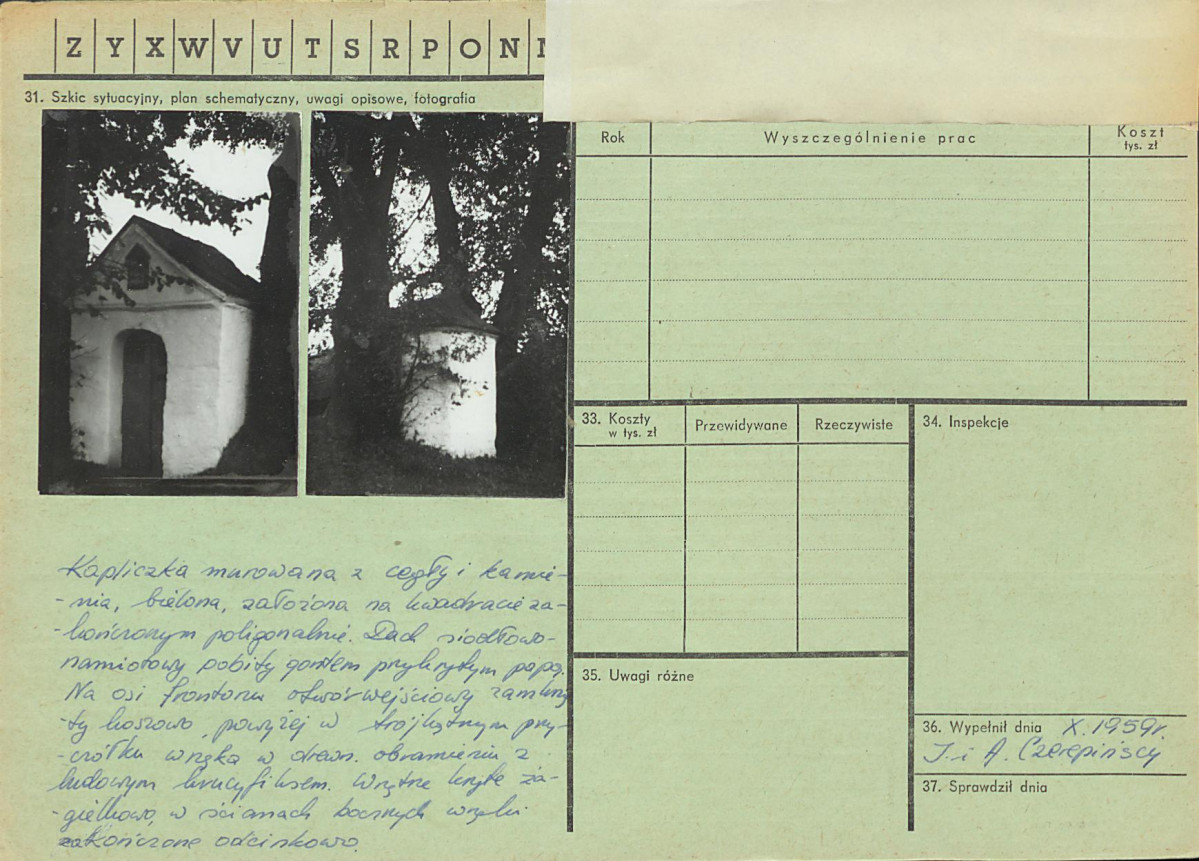 Z Y X W V U T S R P O N
31. Szkic sytuacyjny, plan schematyczny, uwagi opisowe, fotografia
Kapliczka murowana z cegły i kamie-
-nia, bielona, założona na kwadracie za-
-kończonym poligonalnie. Dach siodłowo-
namiotowy pobity gontem przykrytym papą.
Na osi frontonu otwór wejściowy zamknię
-ty koszowo, powyżej w trójkątnym przy-
-czółku wnęka w drewn. obramieniu z
ludowym krucyfiksem. Wnętrze kryte ża-
-gielkowo, w ścianach bocznych wnęki
zakończone odcinkowo.
Rok Wyszczególnienie prac Koszt
tys. zł
33. Koszty
w tys. zł
Przewidywane Rzeczywiste
34. Inspekcje
35. Uwagi różne
36. Wypełnił dnia X. 1959r.
J. i A. Czerepińscy
37. Sprawdził dnia